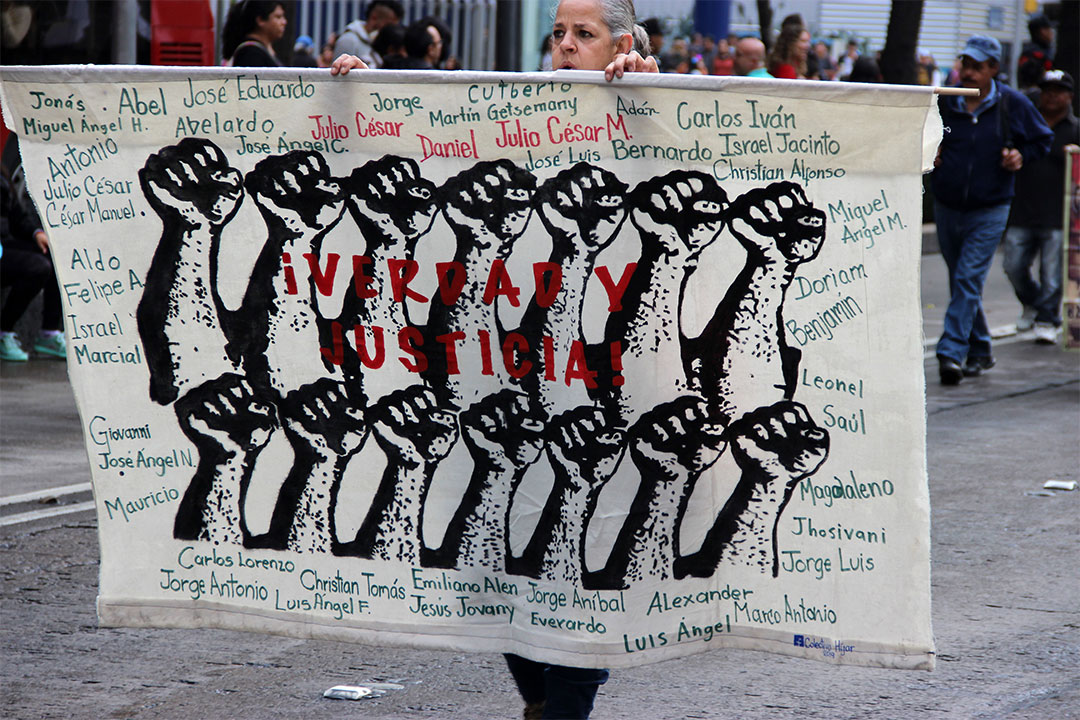 Jonás
Abel
José Eduardo
Jorge
Cutberto
Martín Getsemany
Adán
Carlos Iván
Miguel Ángel H.
Abelardo
José Ángel C.
Julio César
Daniel
Julio César M.
José Luis
Bernardo
Israel Jacinto
Christian Alfonso
Antonio
Julio César
César Manuel.
Miguel
Angel M.
¡VERDAD Y
JUSTICIA!
Aldo
Felipe A.
Israel
Marcial
Doriam
Benjamín
Leonel
Saúl
Giovanni
José Ángel N.
Mauricio
Magdaleno
Jhosivani
Jorge Luis
Carlos Lorenzo
Jorge Antonio
Christian Tomás
Luis Ángel F.
Emiliano Alen
Jesus Jovany
Jorge Aníbal
Everardo
Alexander
Luis Ángel
Marco Antonio
Híjar
2019